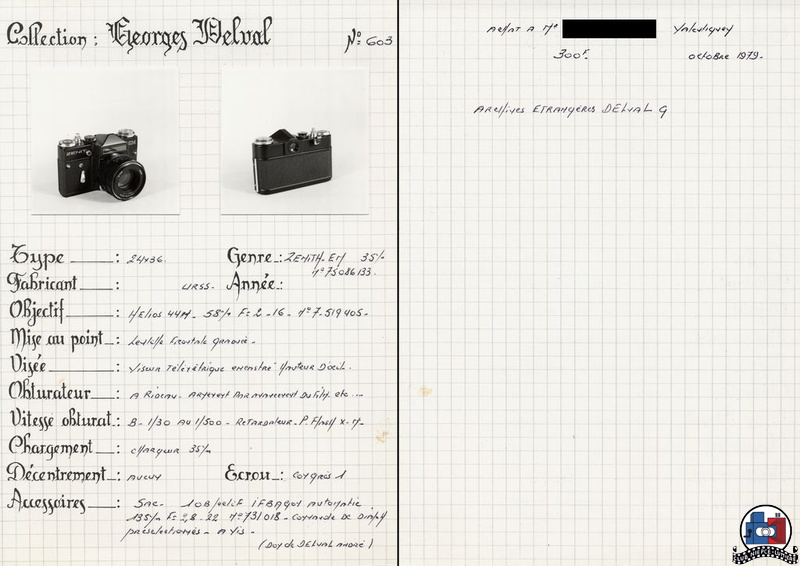 Collection : Georges Delval
N° 603
Type : 24x36.
Genre : ZENITH. EM 35%
n° 75086133.
Fabricant : URSS.
Année :
Objectif : HELIOS 44M - 58% F= 2 - 16 - n° 7.519405.
Mise au point : Lentille Frontale
Visée : Viseur Télémétrique Hauteur D'oeil.
Obturateur : A Rideau. Armement Par mouvement Du film. etc ...
Vitesse obturat. : B - 1/30 AU 1/500 - Retardateur. P. Flash X. M.
Chargement : chargeur 35%
Décentrement : aucun
Ecrou : Congrès 1
Accessoires : Sac. 1 OBJectif automatic.
135% F= 2,8 - 22 n° 731018 - Commande de
préselectionnés - A Vis.
(Don de DELVAL André)
Achat A Mr Valentigney
300F. octobre 1979.
Archives Etrangères DELVAL G